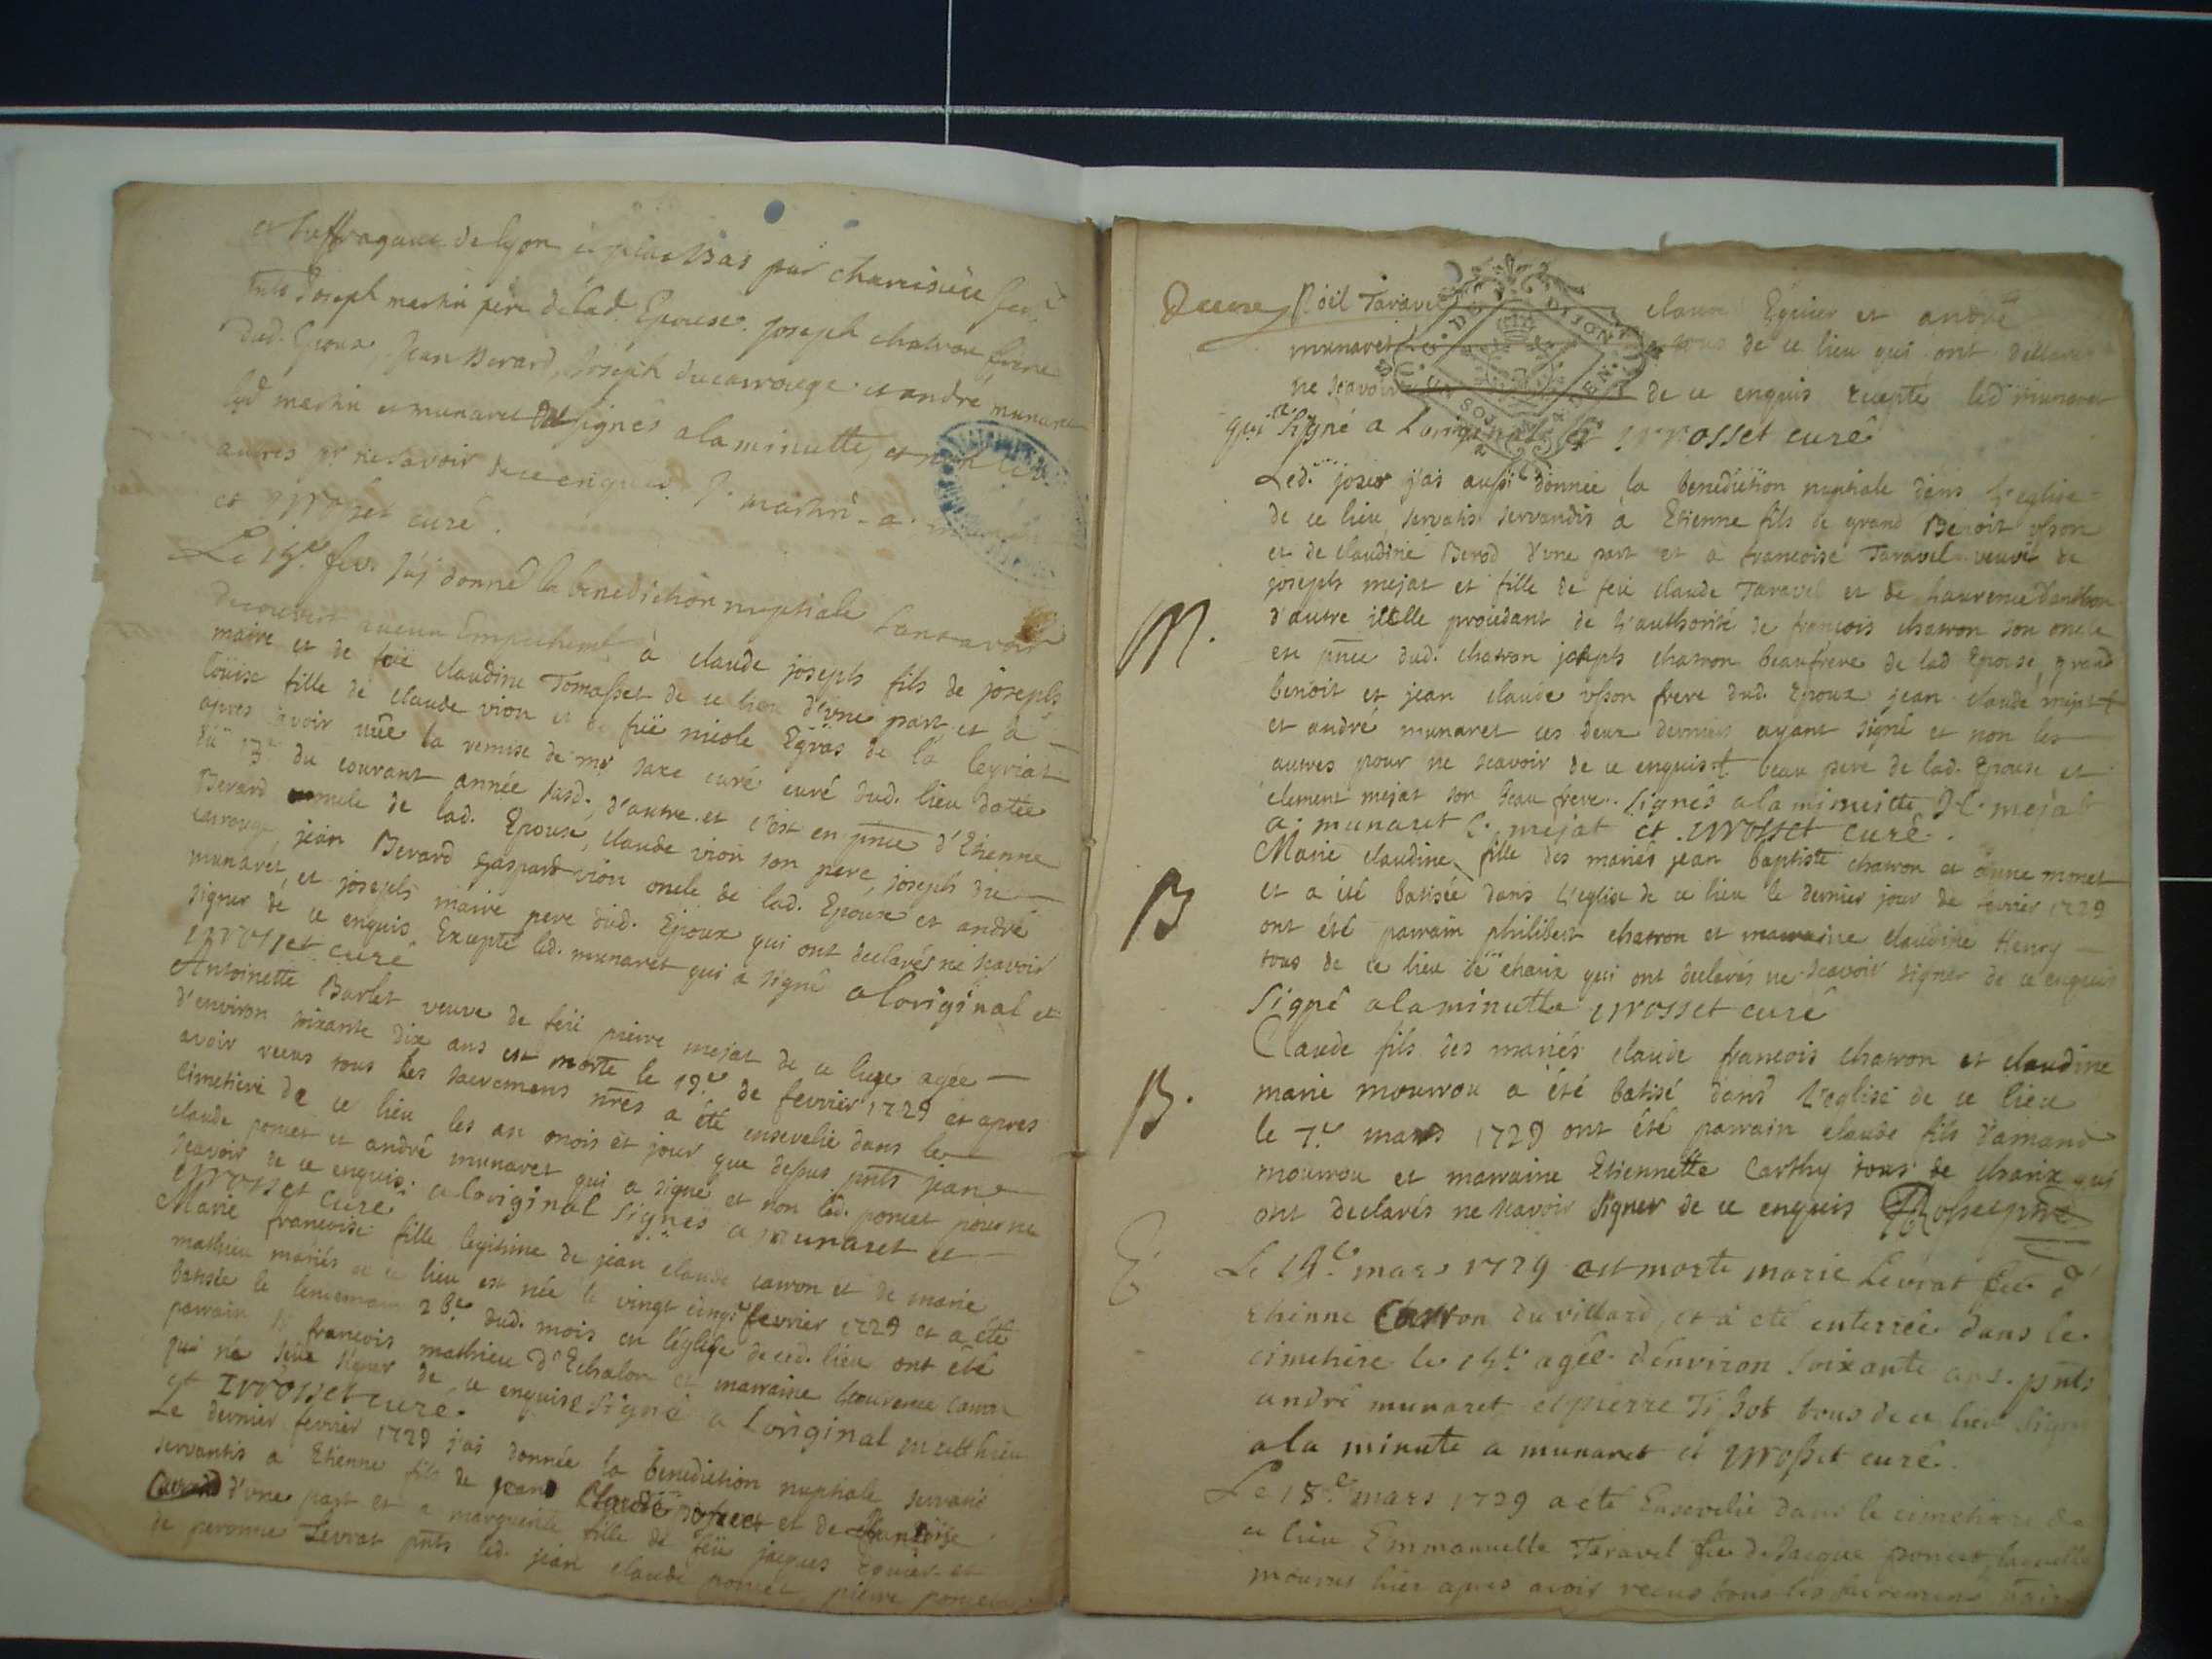 et suffragant de lyon et plus bas par
Joseph martin pere de lad. Epouse. Joseph chatron frere
dud. Epoux, Jean Berard, Joseph ducarrouge et andré munaret
led martin et munaret signés a la minutte, et non les
autres pr ne savoir de ce enquis. J. martin a.
et Mrosset curé.
Le 15e fevr j'aj donné la benediction nuptiale sans avoir
decouvert aucun Empechemt à claude joseph fils de joseph
maire et de feüe claudine Tomasset de ce lieu d'vne part et à
loüise fille de claude vion et de füe nicole Egras de la leyriat
apres avoir vüe la remise de mr saxe curé curé dud. lieu datée
du 13e du courant année susd. d'autre et c'est en pnce d'Etienne
Berard oncle de lad. Epouse, claude vion son pere, joseph du
carrouge, jean Berard gaspard vion oncle de lad. Epouse et andré
munaret, et joseph maire pere dud. Epoux qui ont declarés ne scavoir
signer de ce enquis Excepté led. munaret qui a signé a loriginal et
Mrosset curé
Antoinette Barlet veuve de feü pierre mejat de ce lieu agée
d'environ soixante dix ans est morte le 19e de fevrier 1729 et apres
avoir recus tous les sacremens nres a été ensevelie dans le
cimetiere de ce lieu les an mois et jour que dessus pnts jean
claude poncet et andré munaret qui a signé et non led. poncet pour ne
scavoir de ce enquis. a loriginal signés a munaret et
Mrosset curé
Marie francoise fille legitime de jean claude carron et de marie
mathieu mariés de ce lieu est née le vingt cinqe fevrier 1729 et a été
batisée le lendemain 26e dud. mois en l'église de ced. lieu ont été
parrain francois mathieu d'Echalon et marraine laurence carron
qui ne scüe signer de ce enquise signé a l'original matthieu
et Mrosset curé.
Le dernier fevrier 1729 j'ai donnée la benediction nuptiale servatis
servantis a Etienne fils de jean claude poncet et de
d'vne part et a marguerite fille de feü jacques Eguier et
de peronne Levrat pnts led. jean claude poncet, pierre poncet
Noil Taravel claude Eguier et andré
munaret tous de ce lieu qui ont declarés
ne scavoir de ce enquis excepté led munaret
qui a signé a l'original et Mrosset curé
Led. jour j'ai aussi donnée la benediction nuptiale dans l'eglise
de ce lieu servatis servandis à Etienne fils de grand Benoit vson
et de claudine Berod d'vne part et à francoise Taravel veuve de
joseph mejat et fille de feü claude Taravel et de laurence
d'autre jcelle procedant de l'authorité de francois chatron son oncle
en pnce dud. chatron joseph chatron beaufrere de lad Epouse, grand
benoit et jean claude vson frere dud. Epoux jean claude mejat
et andré munaret ces deux derniers ayant signé et non les
autres pour ne scavoir de ce enquis beau pere de lad. Epouse et
clement mejat son beau frere. signés a la minutte mejat
a. munaret C. mejat et Mrosset curé.
M.
Marie claudine fille des mariés jean baptiste chatron et anne monet
et a été batisée dans l'eglise de ce lieu le dernier jour de fevrier 1729
B
ont été parrain philibert chatron et marraine claudine Henry
tous de ce lieu de charix qui ont declarés ne scavoir signer de ce enquis
signé a la minutte Mrosset curé
Claude fils des mariés claude francois chatron et claudine
marie mourrou a été batisé dans l'eglise de ce lieu
B.
le 7e mars 1729 ont été parrain claude fils d'amand
mourrou et marraine Etiennette Carthy tous de charix qui
ont declarés ne scavoir signer de ce enquis
Le 14e mars 1729 est morte marie Levrat fe d'
ethienne Chatron du villard, et à été enterrée dans le
cimetiere le 15e agée d'environ soixante ans. pnts
andré munaret et pierre tous de ce lieu signé
a la minute a munaret et Mrosset curé.
Le 18e mars 1729 a été Ensevelie dans le cimetiere de
ce lieu Emmanuelle Taravel fe de Jacque poncet, laquelle
mourut hier apres avoir recus tous les sacremens